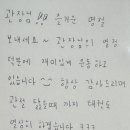 관장님!! 즐거운 명절
보내세요~ 관장님의 열정
덕분에 재미있게 운동하고
있습니다 ^^ 항상 감사드리며
관절 닳을때 까지 대련도
열심히 하겠습니다 ㅋㅋㅋ